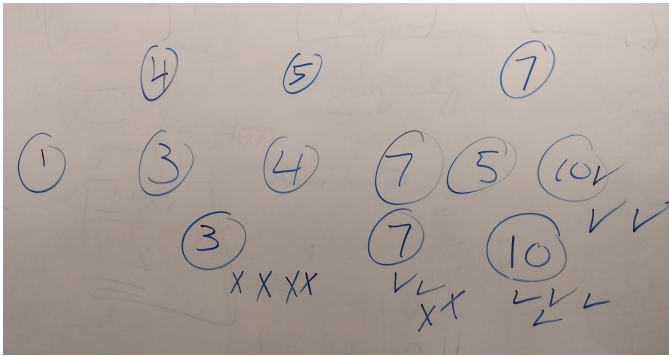 4 5 7
1 3 4 7 5 10 ✓
✓ ✓
3 7 10
X X X X ✓ ✓ ✓ ✓ ✓
X X ✓